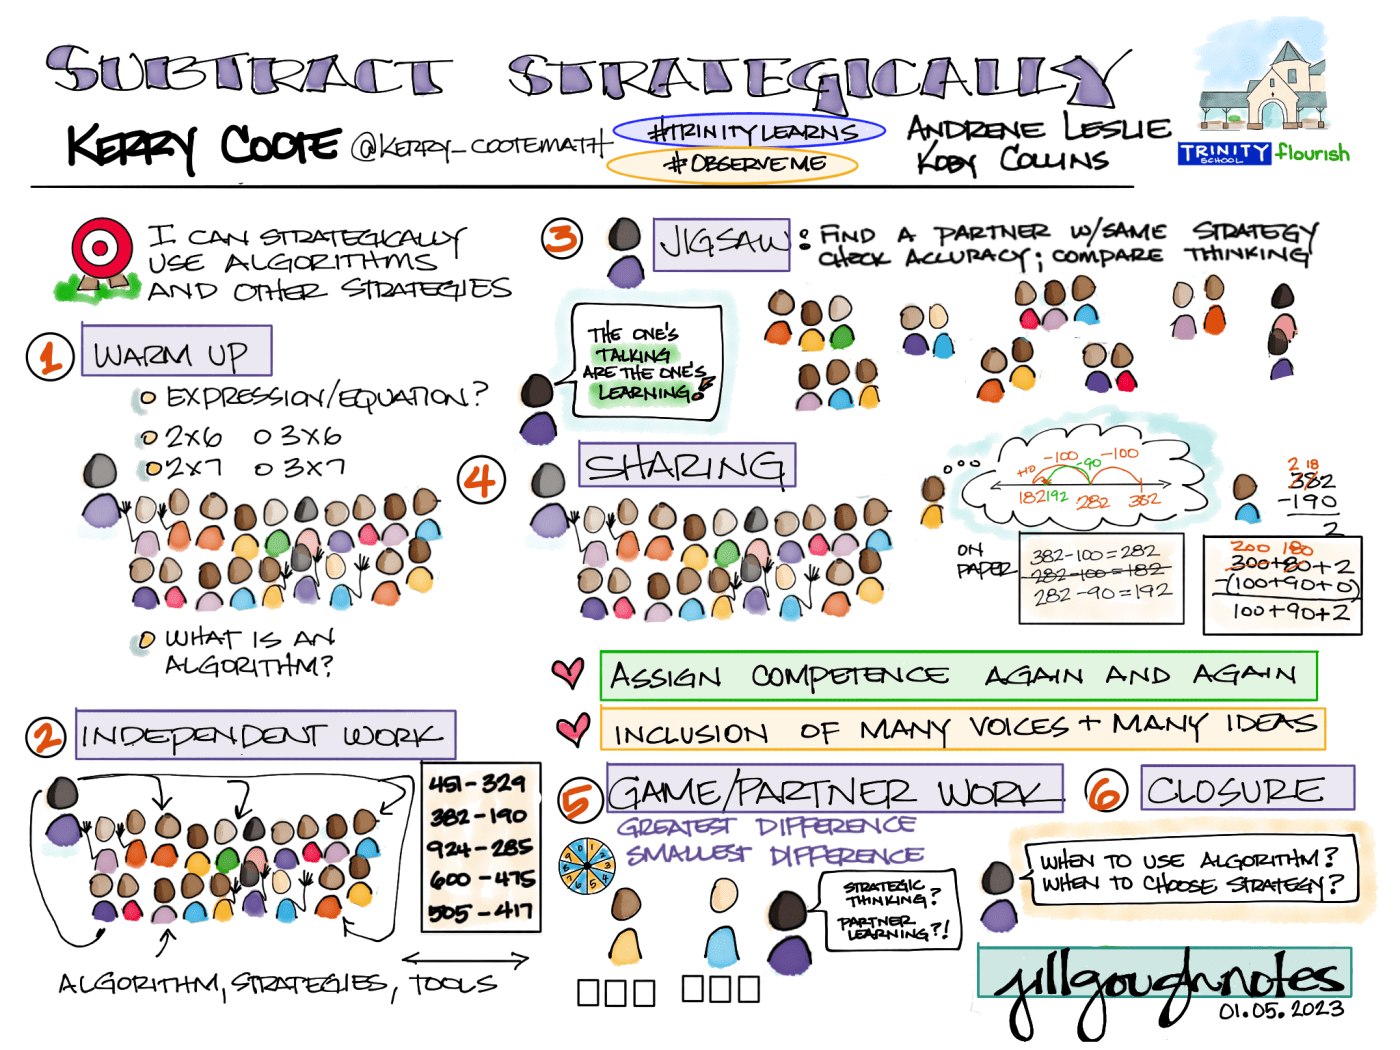 SUBTRACT STRATEGICALLY
KERRY COOTE @KERRY_COOTEMATH
#TRINITYLEARNS
#OBSERVEME
ANDRENE LESLIE
KOBY COLLINS
TRINITY
SCHOOL
flourish
I CAN STRATEGICALLY
USE ALGORITHMS
AND OTHER STRATEGIES
1 WARM UP
EXPRESSION/EQUATION?
2x6 3x6
2x7 3x7
WHAT IS AN
ALGORITHM?
2 INDEPENDENT WORK
451-329
382-190
924-285
600-475
505-417
ALGORITHM, STRATEGIES, TOOLS
3 JIGSAW: FIND A PARTNER W/SAME STRATEGY
CHECK ACCURACY; COMPARE THINKING
THE ONE'S
TALKING
ARE THE ONE'S
LEARNING!
4 SHARING
+10 -100 -90 -100
182 192 282 382
ON
PAPER
382-100=282
282-100=182
282-90=192
2 18
382
-190
2
200 180
300+80+2
-(100+90+0)
100+90+2
ASSIGN COMPETENCE AGAIN AND AGAIN
INCLUSION OF MANY VOICES + MANY IDEAS
5 GAME/PARTNER WORK
GREATEST DIFFERENCE
SMALLEST DIFFERENCE
STRATEGIC
THINKING?
PARTNER
LEARNING?!
6 CLOSURE
WHEN TO USE ALGORITHM?
WHEN TO CHOOSE STRATEGY?
jillgoughnotes
01.05.2023